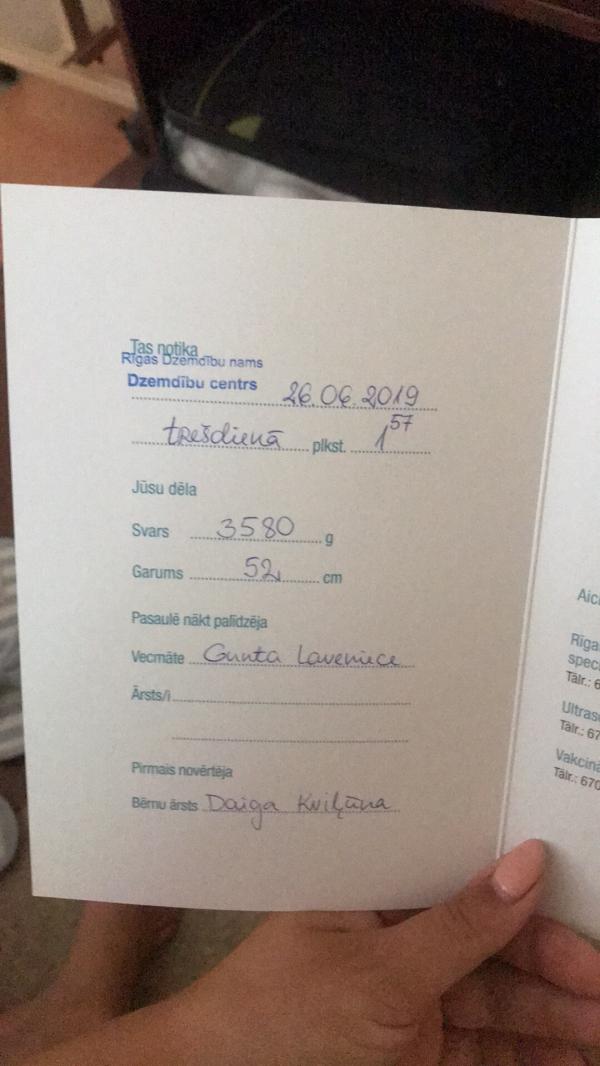 Tas notika
Rīgas Dzemdību nams
Dzemdību centrs 26.06.2019
trešdienā plkst. 1 57
Jūsu dēla
Svars 3580 g
Garums 52 cm
Pasaulē nākt palīdzēja
Vecmāte Gunta Laveniece
Ārsts/i
Pirmais novērtēja
Bērnu ārsts Daiga Kviļūna
Aic
Rīga
speci
Tālr.: 6
Ultras
Tālr.: 67
Vakcinā
Tālr.: 670